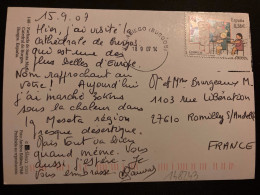 15.9.07
Hier, j'ai visité la
cathédrale de Burgos
qui est une des
plus belles d'Europe.
Nom rapprochant au
vôtre! Aujourd'hui
j'ai marché 30 kms
sous la chaleur dans
la Meseta région
presque désertique.
Mais tout va bien
quand même. Vous
aussi j'espère. Je
vous embrasse.
España
Mr et Mme Bourgeaux M.
1103 rue Libération
27610 Romilly s/Andelle
FRANCE